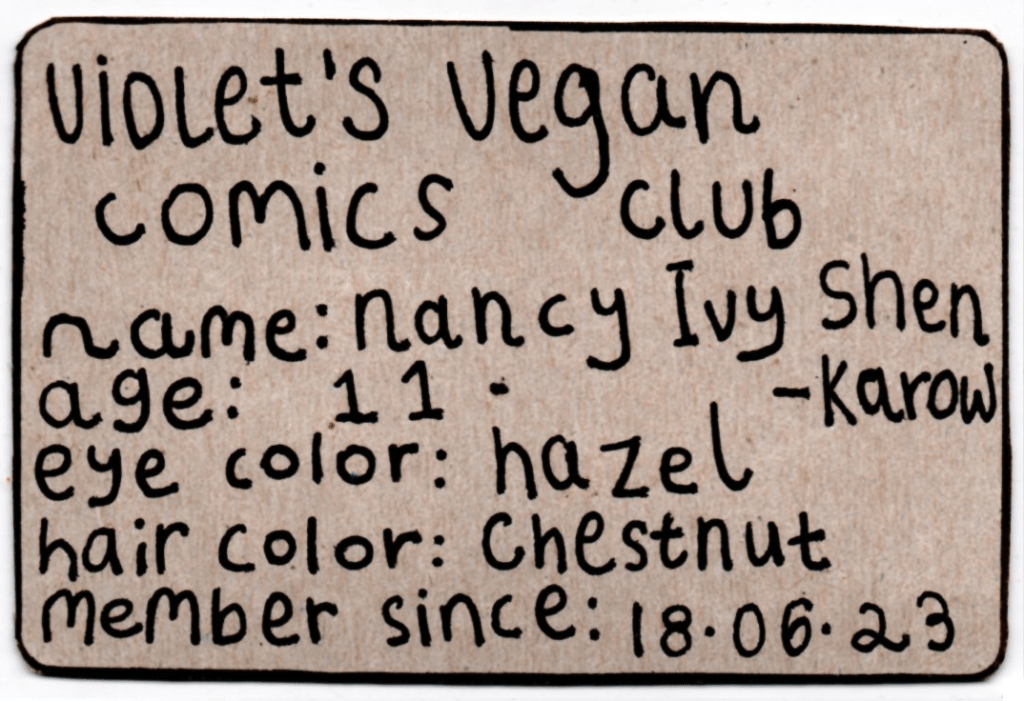 Violet's Vegan
comics club
name: nancy Ivy Shen
-Karow
age: 11.
eye color: hazel
hair color: Chestnut
member since: 18.06.23